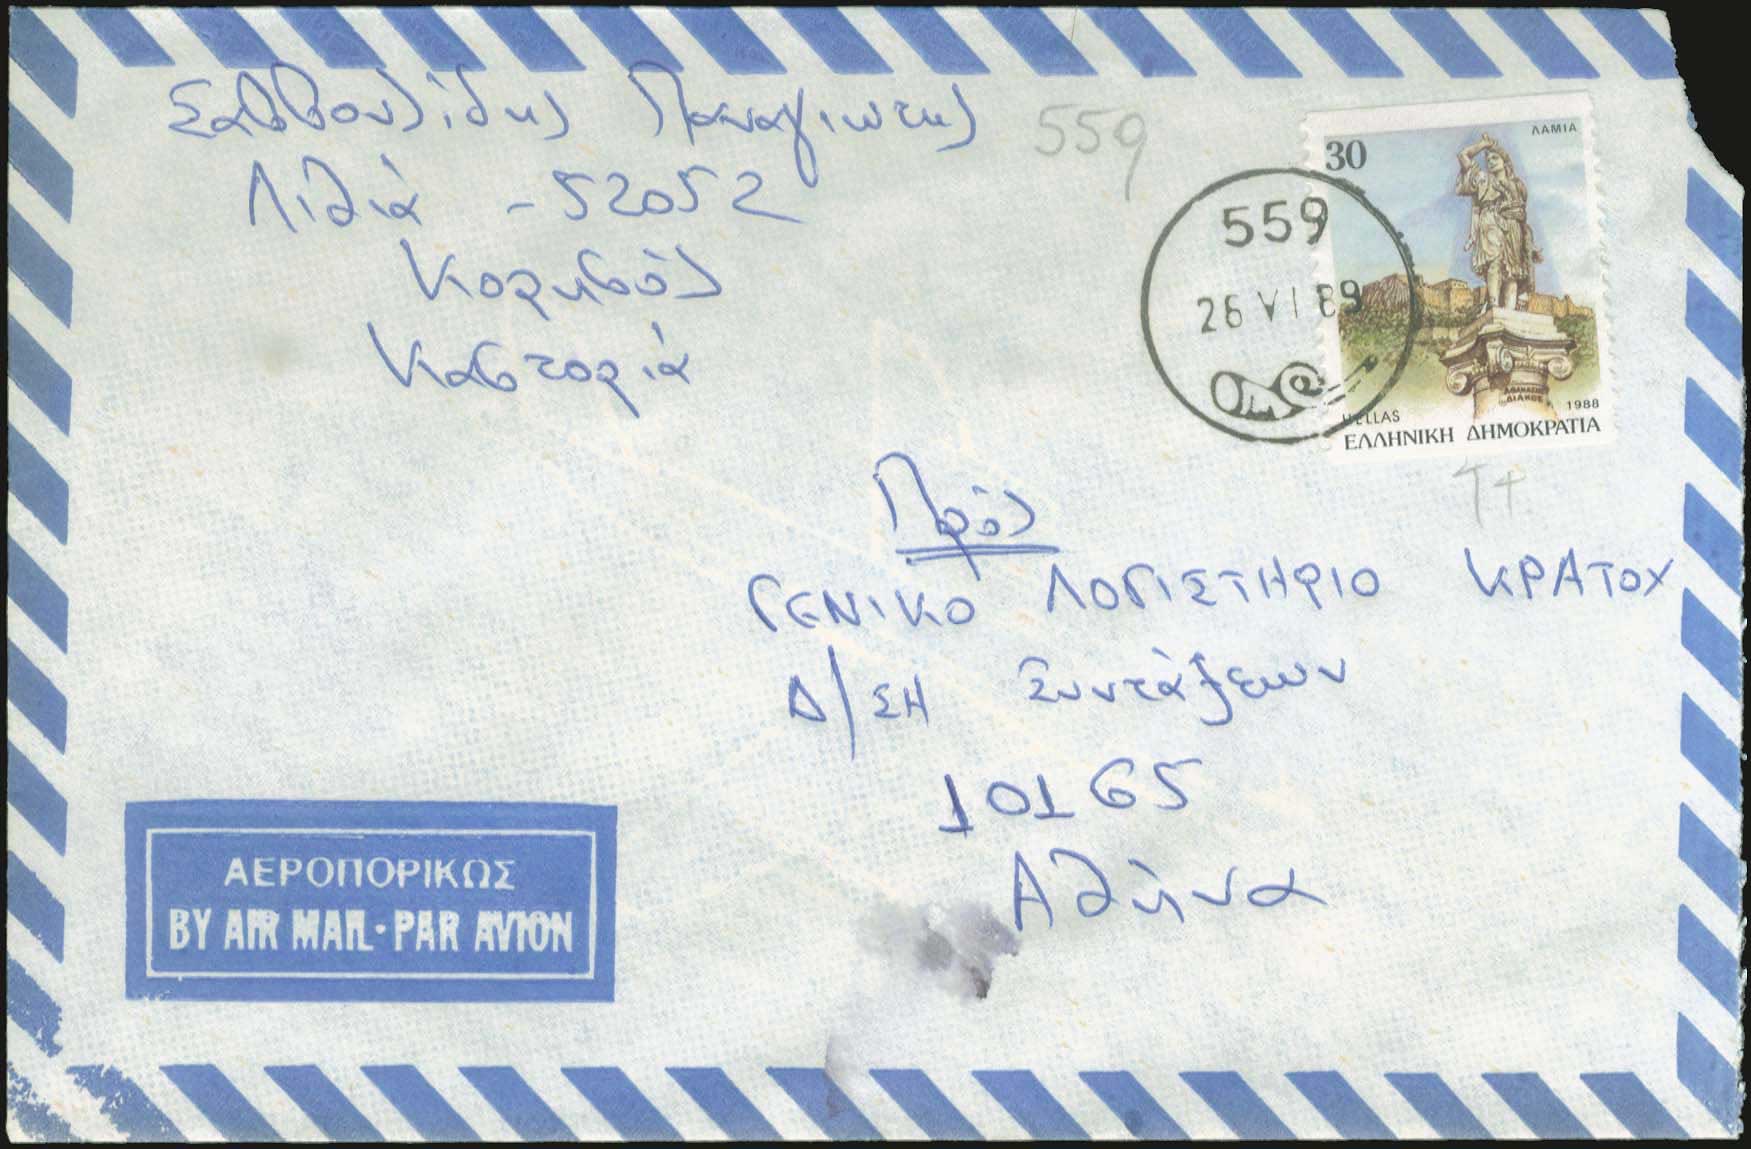 Σαββουλίδης Παναγιώτης
559
Λιθιά - 52052
Κορησός
Καστοριά
30
ΛΑΜΙΑ
559
26 VI 89
ΑΘΑΝΑΣΙΟΣ
ΔΙΑΚΟΣ
HELLAS
1988
ΕΛΛΗΝΙΚΗ ΔΗΜΟΚΡΑΤΙΑ
Πρός
ΓΕΝΙΚΟ ΛΟΓΙΣΤΗΡΙΟ ΚΡΑΤΟΥ
Δ/ΣΗ Συντάξεων
10165
Αθήνα
ΑΕΡΟΠΟΡΙΚΩΣ
BY AIR MAIL·PAR AVION